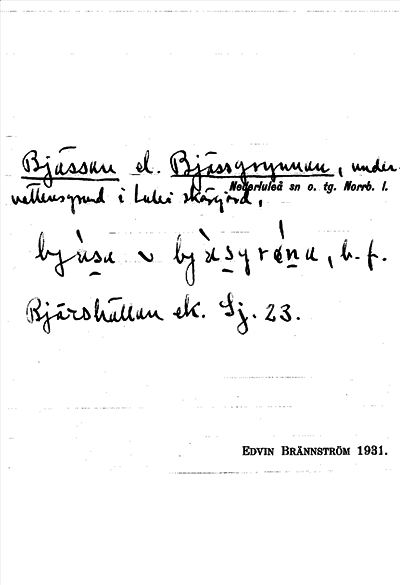 Bjässan el. Bjässgrynnan, under-
vattensgrund i Luleå skärgård,
Nederluleå sn o. tg. Norrb. l.
b. f.
Bjärshällan ek. Sj. 23.
EDVIN BRÄNNSTRÖM 1931.